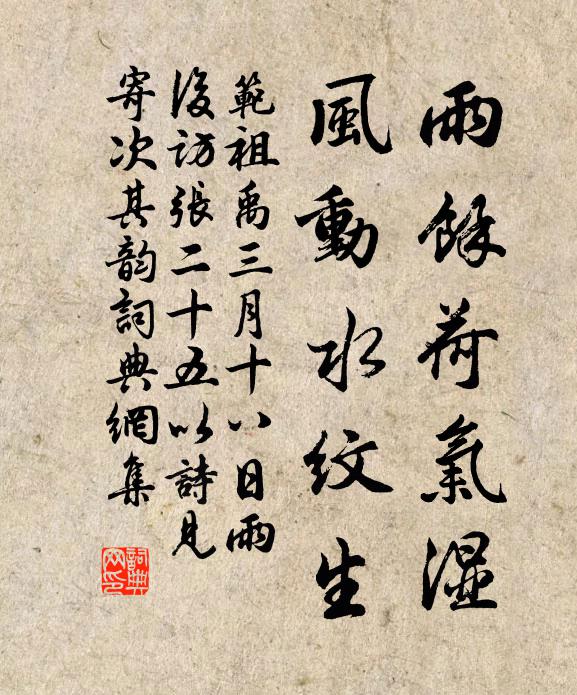 雨餘荷氣濕
風動水紋生
範祖禹三月十八日雨
後訪張二十五以詩見
寄次其韵詞典網集
詞典网印